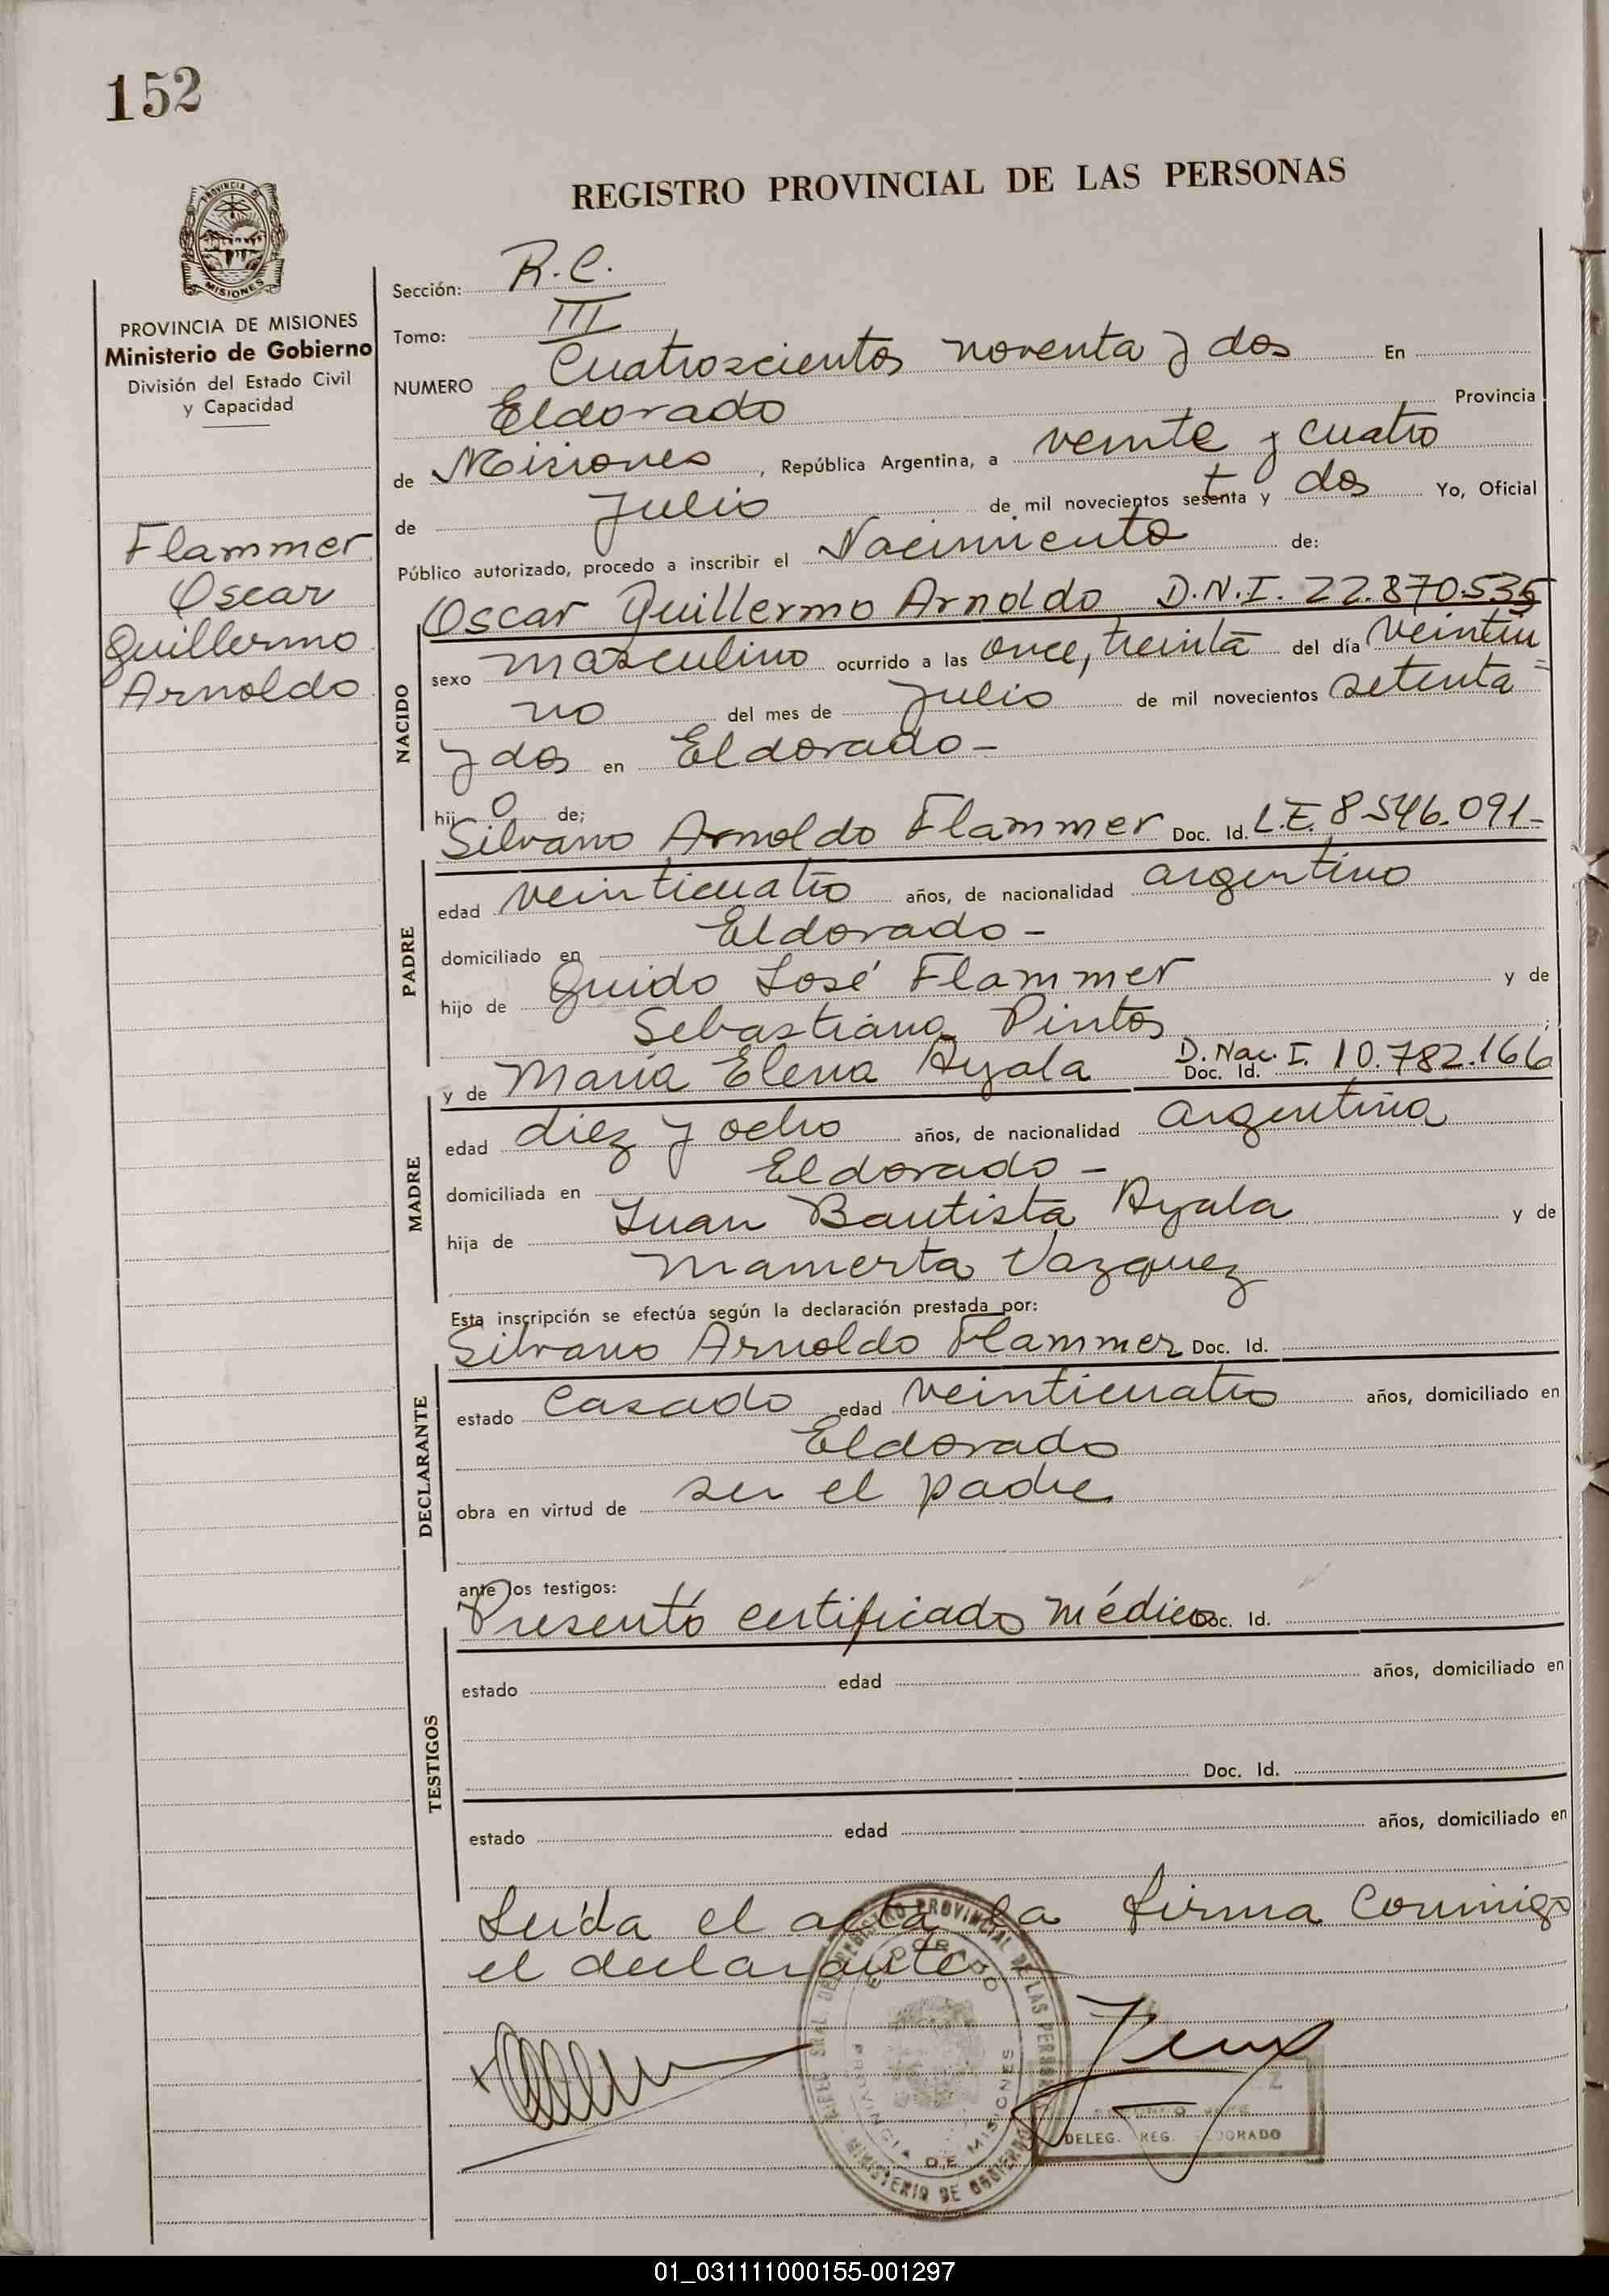 152
REGISTRO PROVINCIAL DE LAS PERSONAS
PROVINCIA DE MISIONES
Ministerio de Gobierno
División del Estado Civil
y Capacidad
Flammer
Oscar
Guillermo
Arnoldo
Sección: R.C.
Tomo: III
NUMERO Cuatroscientos noventa y dos En
Eldorado Provincia
de Misiones, República Argentina, a veinte y cuatro
de Julio de mil novecientos setenta y dos Yo, Oficial
Público autorizado, procedo a inscribir el Nacimiento de:
NACIDO
Oscar Guillermo Arnoldo D.N.I. 22.870.535
sexo masculino ocurrido a las once, treinta del día veintiu=
no del mes de Julio de mil novecientos setenta
y dos en Eldorado-
hijo de;
PADRE
Silvano Arnoldo Flammer Doc. Id. L.E. 8.546.091-
edad veinticuatro años, de nacionalidad argentino
domiciliado en Eldorado-
hijo de Guido José Flammer y de
Sebastiana Pintos;
MADRE
y de María Elena Ayala Doc. Id. D. Nac. I. 10.782.166
edad diez y ocho años, de nacionalidad argentina
domiciliada en Eldorado-
hija de Juan Bautista Ayala y de
Mamerta Vazquez
DECLARANTE
Esta inscripción se efectúa según la declaración prestada por:
Silvano Arnoldo Flammer Doc. Id.
estado Casado edad veinticuatro años, domiciliado en
Eldorado
obra en virtud de ser el padre
TESTIGOS
ante los testigos:
Presentó certificado médico Doc. Id.
estado edad años, domiciliado en
Doc. Id.
estado edad años, domiciliado en
Leída el acta la firma conmigo
el declarante.
REGISTRO PROVINCIAL DE LAS PERSONAS
ELDORADO
PROVINCIA DE MISIONES
MINISTERIO DE GOBIERNO
DELEG. REG.
01_031111000155-001297